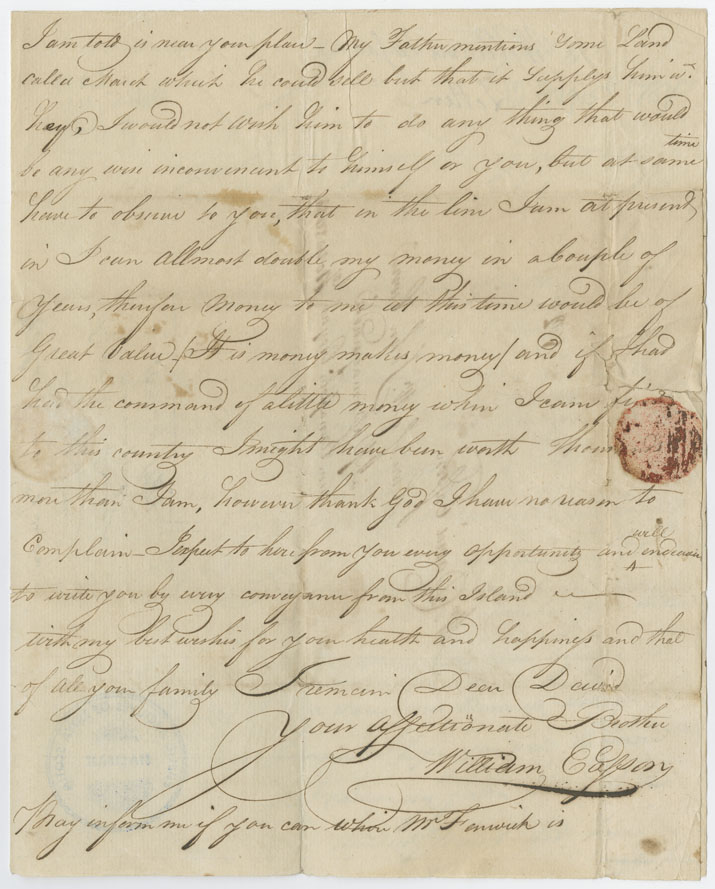 I am told is near your place - My Father mentions some Land
called March which he could sell but that it Supplys him wt.
Hay, I would not wish him to do any thing that would
be any wise inconvenient to himself or you, but at same time
have to observe to you, that in the line I am at present
in I can allmost double my money in a Couple of
Years, therefore Money to me at this time would be of
Great Value / It is money makes money / and if I had
had the command of a little money when I came
to this country I might have been worth
more than I am, however thank God I have no reason to
Complain - I expect to here from you every opportunity and will endeavour
to write you by every conveyance from this Island
with my best wishes for your health and happiness and that
of all your family I remain Dear David
Your Affectionate Brother
William Easson
Pray inform me if you can where Mr Fenwick is